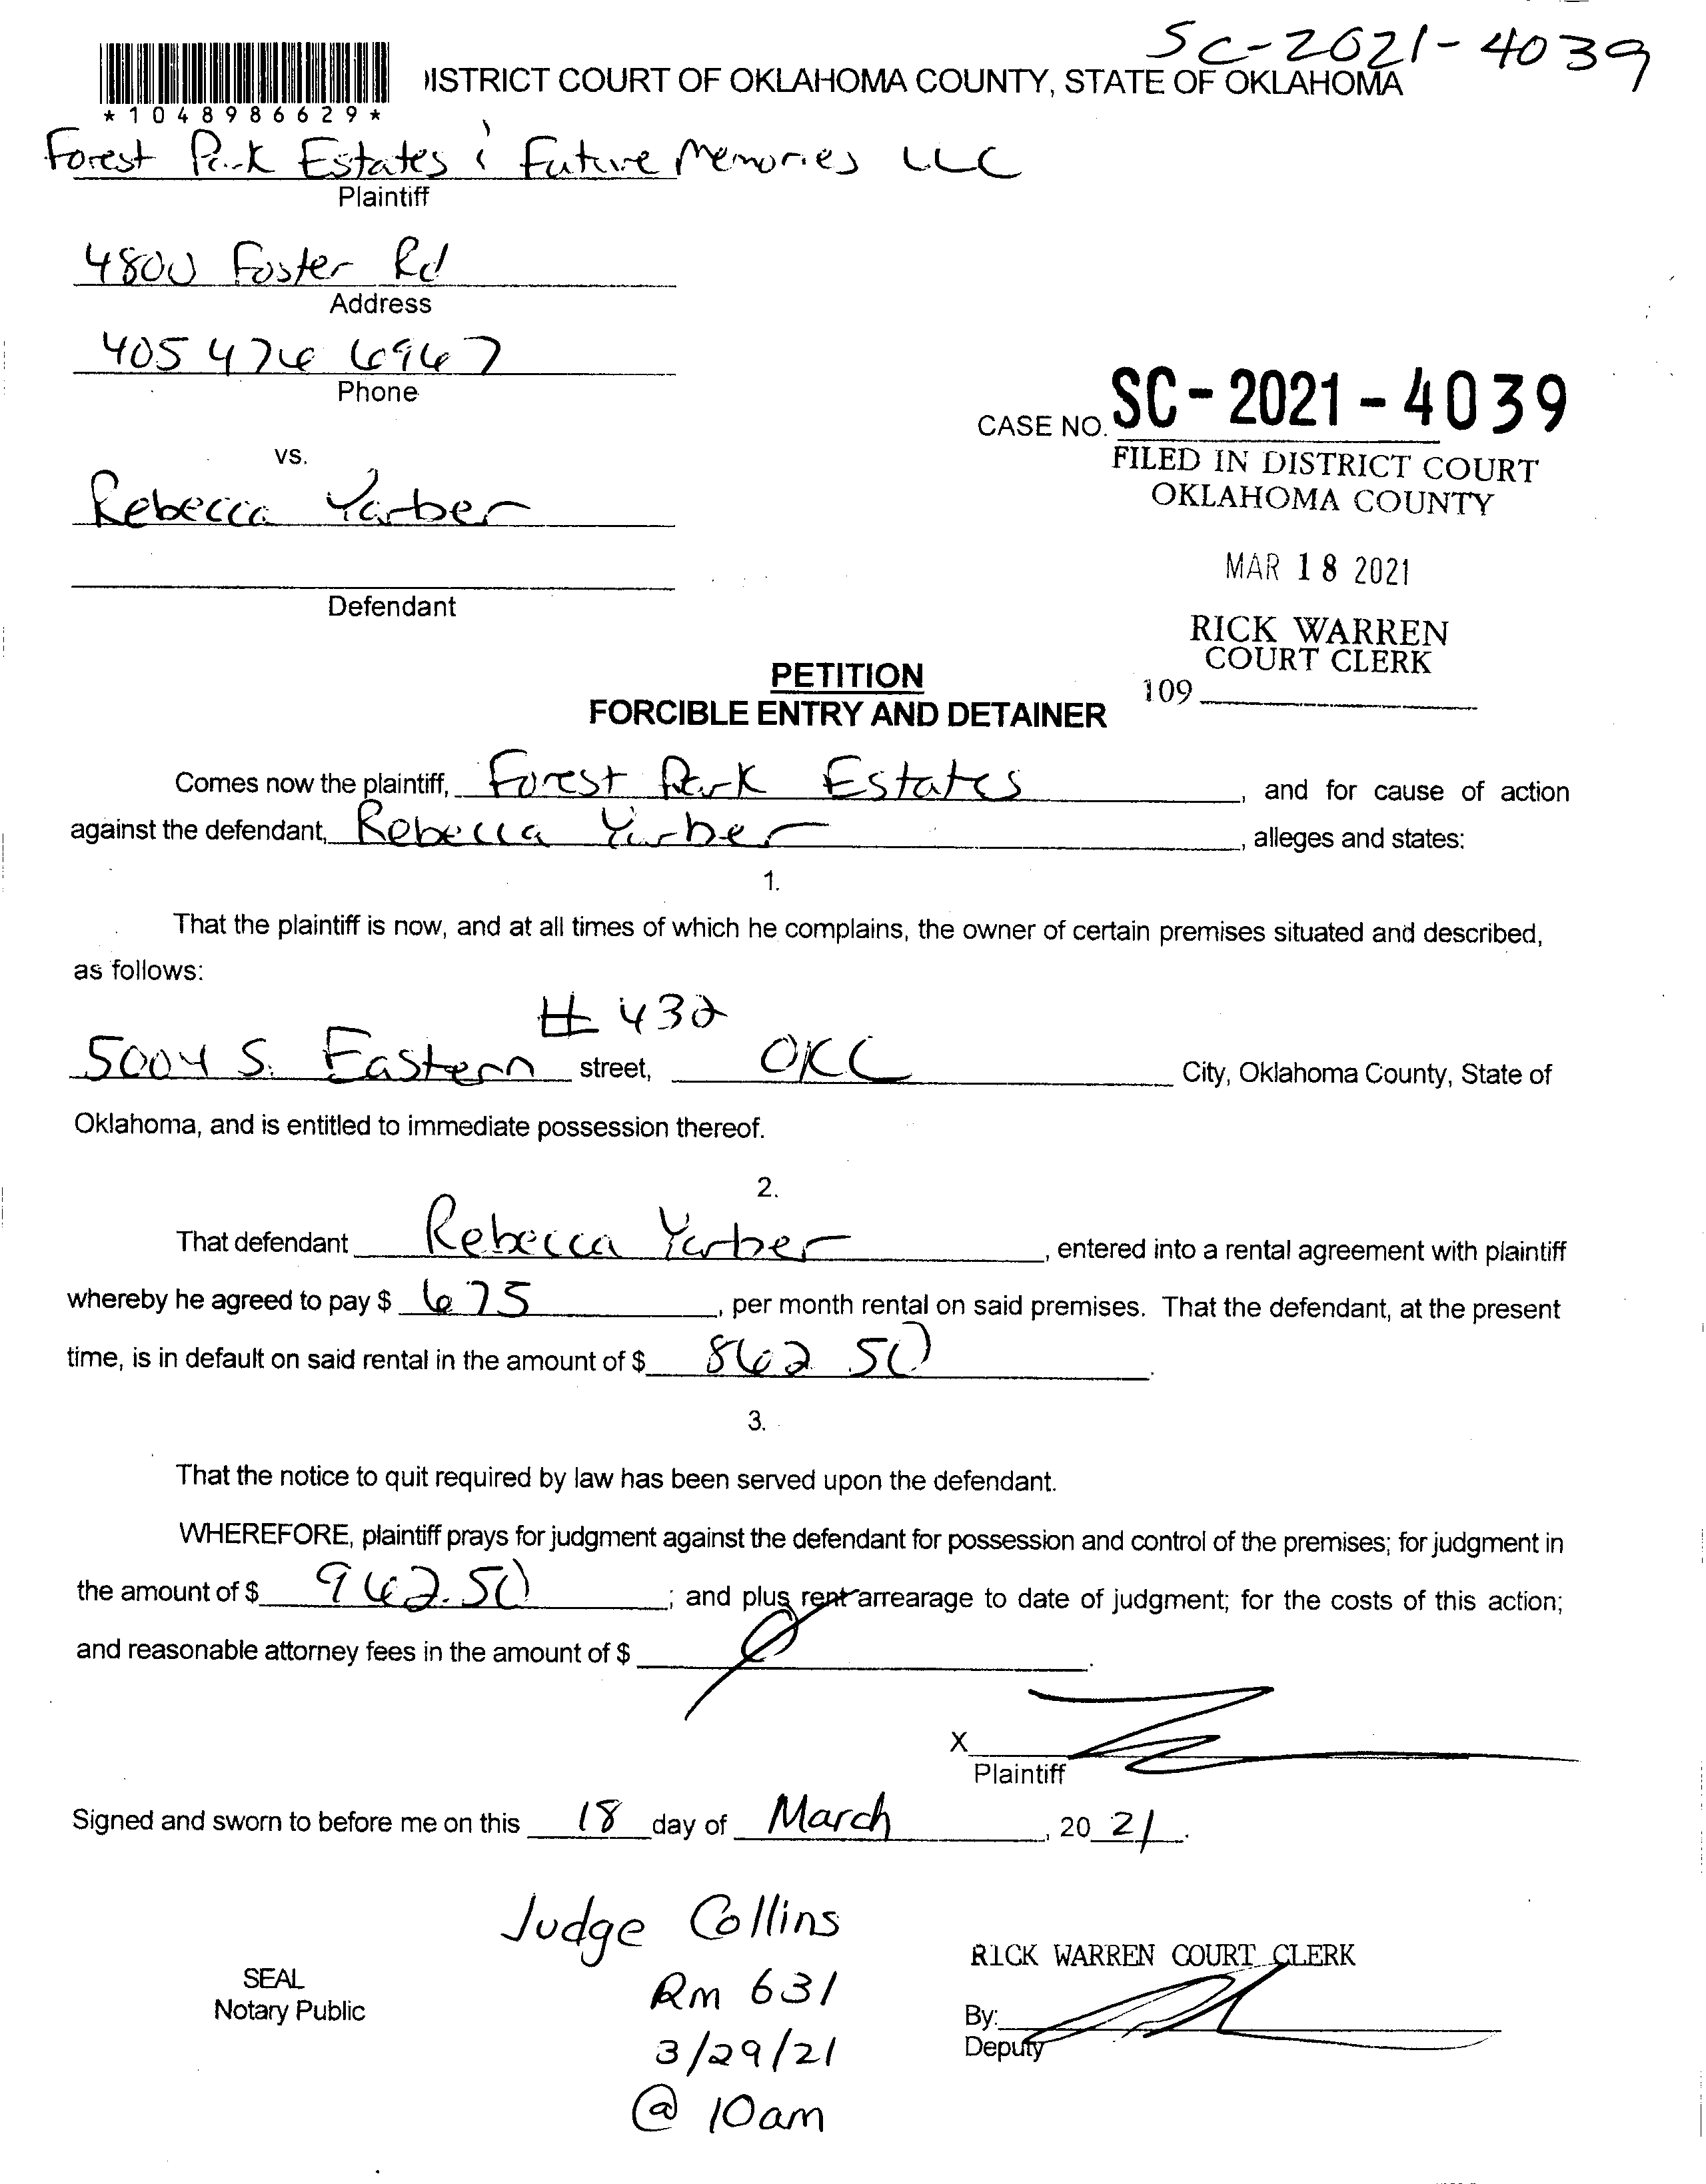 SC-2021-4039
ISTRICT COURT OF OKLAHOMA COUNTY, STATE OF OKLAHOMA
*1048986629*
Forest Park Estates & Future Memories LLC
Plaintiff
4800 Foster Rd
Address
405 476 6967
Phone
CASE NO. SC-2021-4039
FILED IN DISTRICT COURT
OKLAHOMA COUNTY
vs.
Rebecca Yarber
MAR 18 2021
Defendant
RICK WARREN
COURT CLERK
109
PETITION
FORCIBLE ENTRY AND DETAINER
Comes now the plaintiff, Forest Park Estates, and for cause of action
against the defendant, Rebecca Yarber, alleges and states:
1.
That the plaintiff is now, and at all times of which he complains, the owner of certain premises situated and described,
as follows:
# 432
5004 S. Eastern street, OKC City, Oklahoma County, State of
Oklahoma, and is entitled to immediate possession thereof.
2.
That defendant Rebecca Yarber, entered into a rental agreement with plaintiff
whereby he agreed to pay $ 675, per month rental on said premises. That the defendant, at the present
time, is in default on said rental in the amount of $ 862 50.
3.
That the notice to quit required by law has been served upon the defendant.
WHEREFORE, plaintiff prays for judgment against the defendant for possession and control of the premises; for judgment in
the amount of $ 962.50; and plus rent arrearage to date of judgment; for the costs of this action;
and reasonable attorney fees in the amount of $ Ø.
X
Plaintiff
Signed and sworn to before me on this 18 day of March, 2021.
Judge Collins
Rm 631
3/29/21
@ 10am
SEAL
Notary Public
RICK WARREN COURT CLERK
By:
Deputy